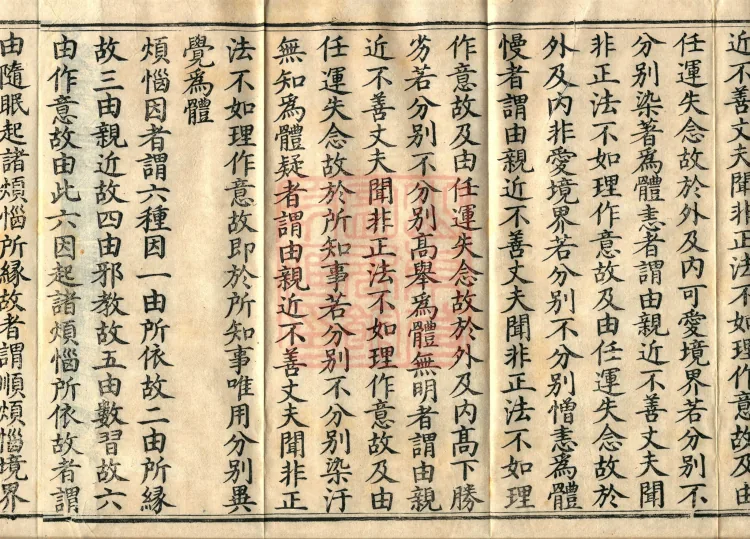 近不善丈夫聞非正法不如理作意故及由
任運失念故於外及内可愛境界若分別不
分別染著爲體恚者謂由親近不善丈夫聞
非正法不如理作意故及由任運失念故於
外及内非愛境界若分別不分別憎恚爲體
慢者謂由親近不善丈夫聞非正法不如理
作意故及由任運失念故於外及内髙下勝
劣若分別不分別髙舉爲體無明者謂由親
近不善丈夫聞非正法不如理作意故及由
任運失念故於所知事若分別不分別染汙
無知爲體疑者謂由親近不善丈夫聞非正
法不如理作意故即於所知事唯用分別異
覺爲體
煩惱因者謂六種因一由所依故二由所縁
故三由親近故四由邪教故五由數習故六
由作意故由此六因起諸煩惱所依故者謂
由隨眠起諸煩惱所縁故者謂順煩惱境界